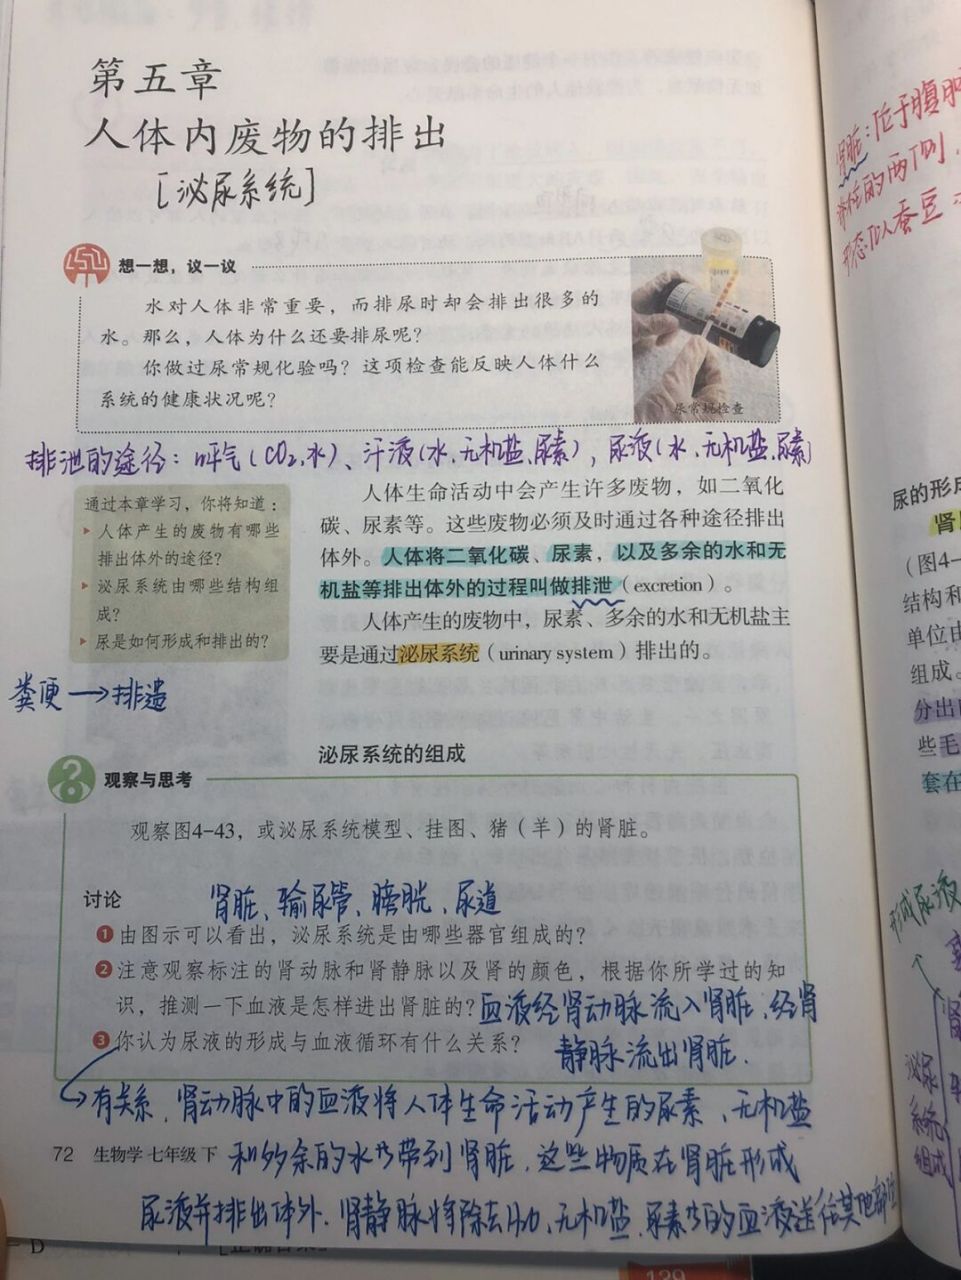 第五章
人体内废物的排出
[泌尿系统]
想一想，议一议
水对人体非常重要，而排尿时却会排出很多的
水。那么，人体为什么还要排尿呢？
你做过尿常规化验吗？这项检查能反映人体什么
系统的健康状况呢？
尿常规检查
排泄的途径：呼气(CO₂,水)、汗液(水、无机盐、尿素)，尿液(水、无机盐、尿素)
通过本章学习，你将知道：
人体产生的废物有哪些
排出体外的途径？
泌尿系统由哪些结构组
成？
尿是如何形成和排出的？
人体生命活动中会产生许多废物，如二氧化
碳、尿素等。这些废物必须及时通过各种途径排出
体外。人体将二氧化碳、尿素，以及多余的水和无
机盐等排出体外的过程叫做排泄（excretion）。
人体产生的废物中，尿素、多余的水和无机盐主
要是通过泌尿系统（urinary system）排出的。
粪便→排遗
泌尿系统的组成
观察与思考
观察图4-43，或泌尿系统模型、挂图、猪（羊）的肾脏。
讨论
肾脏、输尿管、膀胱、尿道
❶由图示可以看出，泌尿系统是由哪些器官组成的？
❷注意观察标注的肾动脉和肾静脉以及肾的颜色，根据你所学过的知
识，推测一下血液是怎样进出肾脏的？血液经肾动脉流入肾脏，经肾
静脉流出肾脏.
❸你认为尿液的形成与血液循环有什么关系？
有关系，肾动脉中的血液将人体生命活动产生的尿素、无机盐
和多余的水等带到肾脏，这些物质在肾脏形成
尿液并排出体外.肾静脉将除去H₂O,无机盐.尿素等的血液送往其他部位
72 生物学 七年级 下
肾脏:位于腹腔
脊柱的两侧,
形态如蚕豆
尿的形成
肾
(图4-
结构和
单位由
组成。
分出
些毛
套在
形成尿液
肾
泌尿
系统
组成
D
139